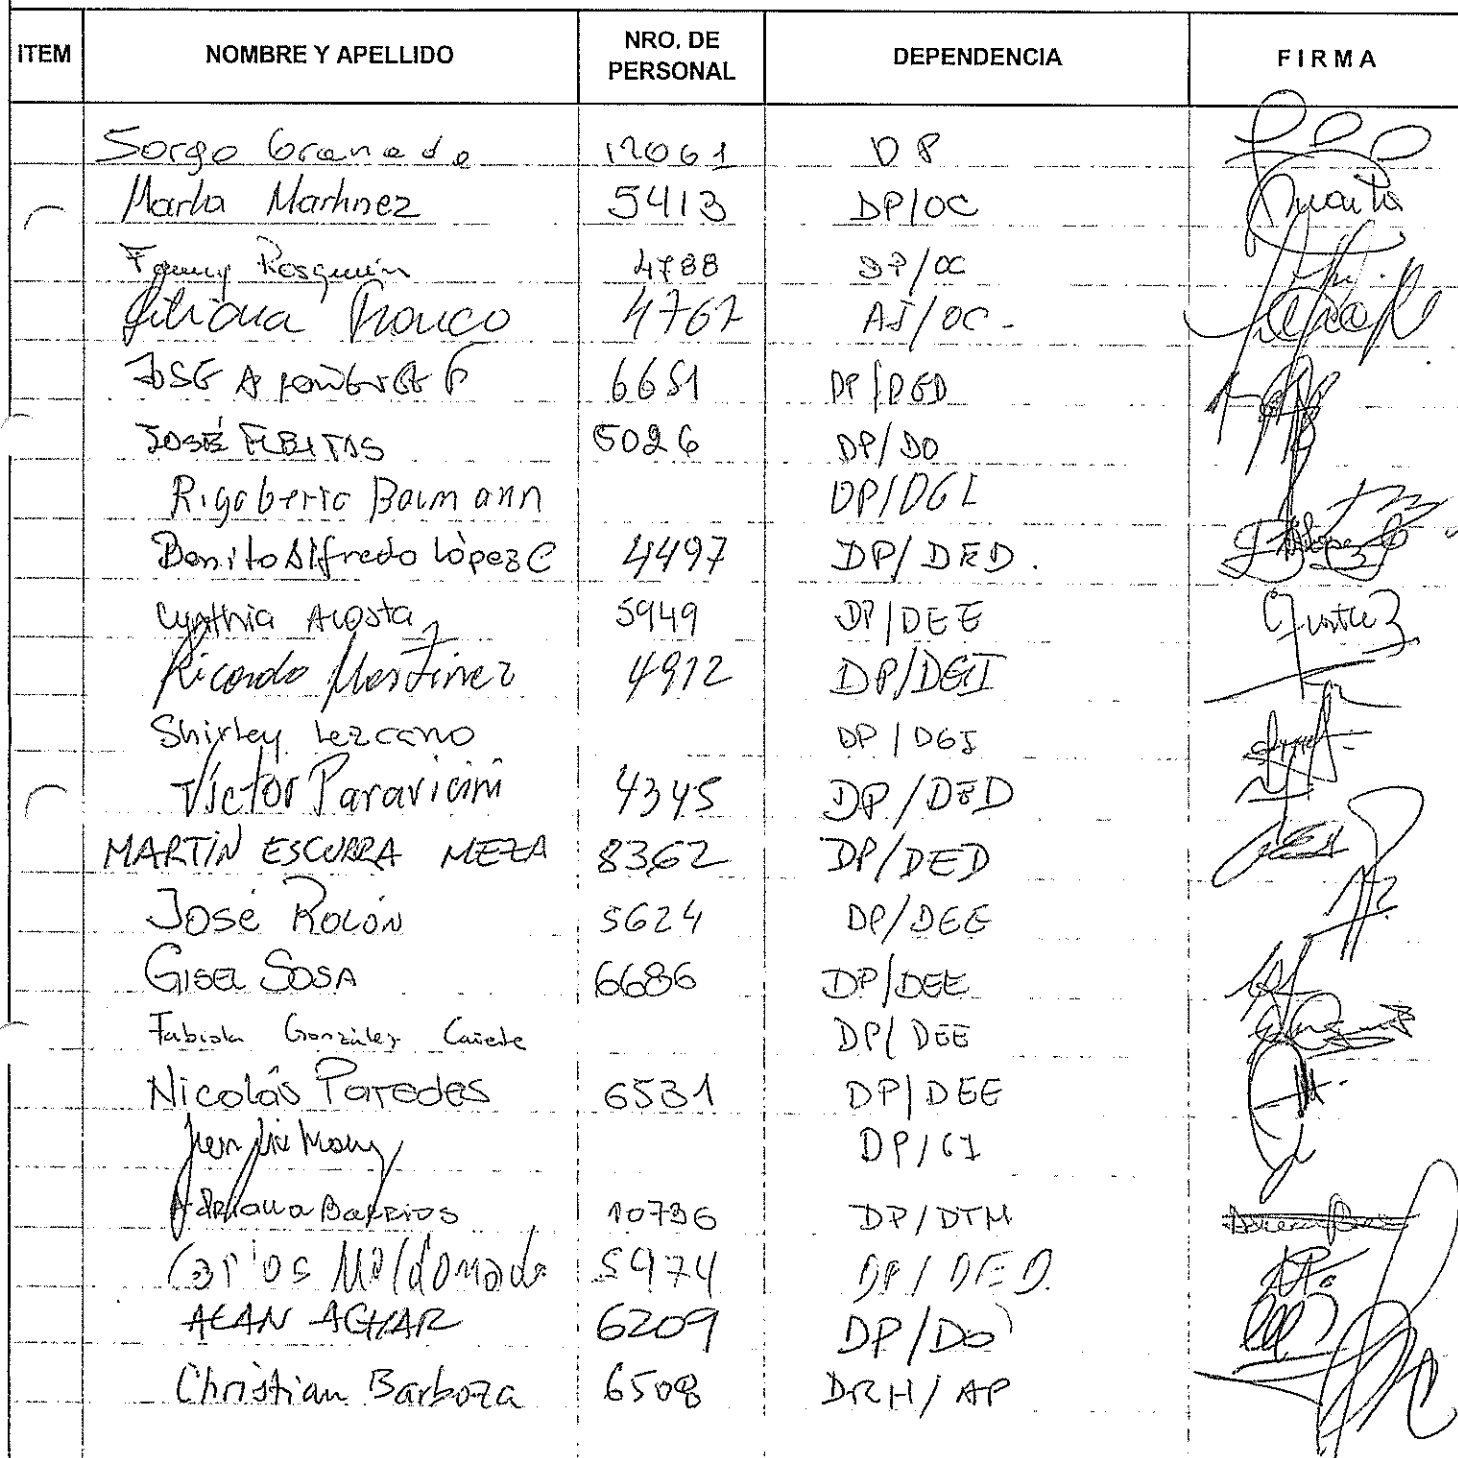 ITEM NOMBRE Y APELLIDO NRO. DE PERSONAL DEPENDENCIA FIRMA
Sorgo Granada 12061 DP
Marta Martinez 5413 DP/OC Marta
Fanny Rosquin 4788 DP/OC
Liliana Franco 4762 AJ/OC-
JOSE A 6651 DP/DED
JOSÉ FLEITAS 5026 DP/DO
Rigoberto Baumann DP/DGI
Benito Alfredo López C 4497 DP/DED.
Cynthia Acosta 5949 DP/DEE
Ricardo Martinez 4912 DP/DGI
Shirley Lezcano DP/DGI
Víctor Paravicini 4345 DP/DED
MARTÍN ESCURRA MEZA 8362 DP/DED
José Rolón 5624 DP/DEE
GISEL SOSA 6686 DP/DEE
Fabiola González Cañete DP/DEE
Nicolás Paredes 6531 DP/DEE
DP/GI
Adriana Barrios 10736 DP/DTM
Carlos Maldonado 5974 DP/DED.
ALAN AGUAR 6209 DP/DO
Christian Barboza 6508 DRH/AP